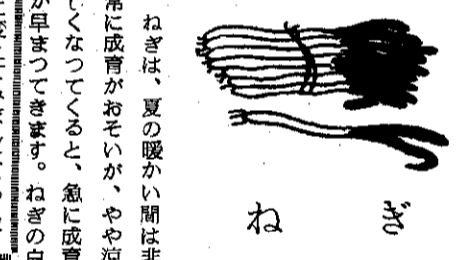 ねぎ
ねぎは、夏の暖かい間は非
常に成育がおそいが、やや涼
しくなつてくると、急に成育
が早まつてきます。ねぎの白